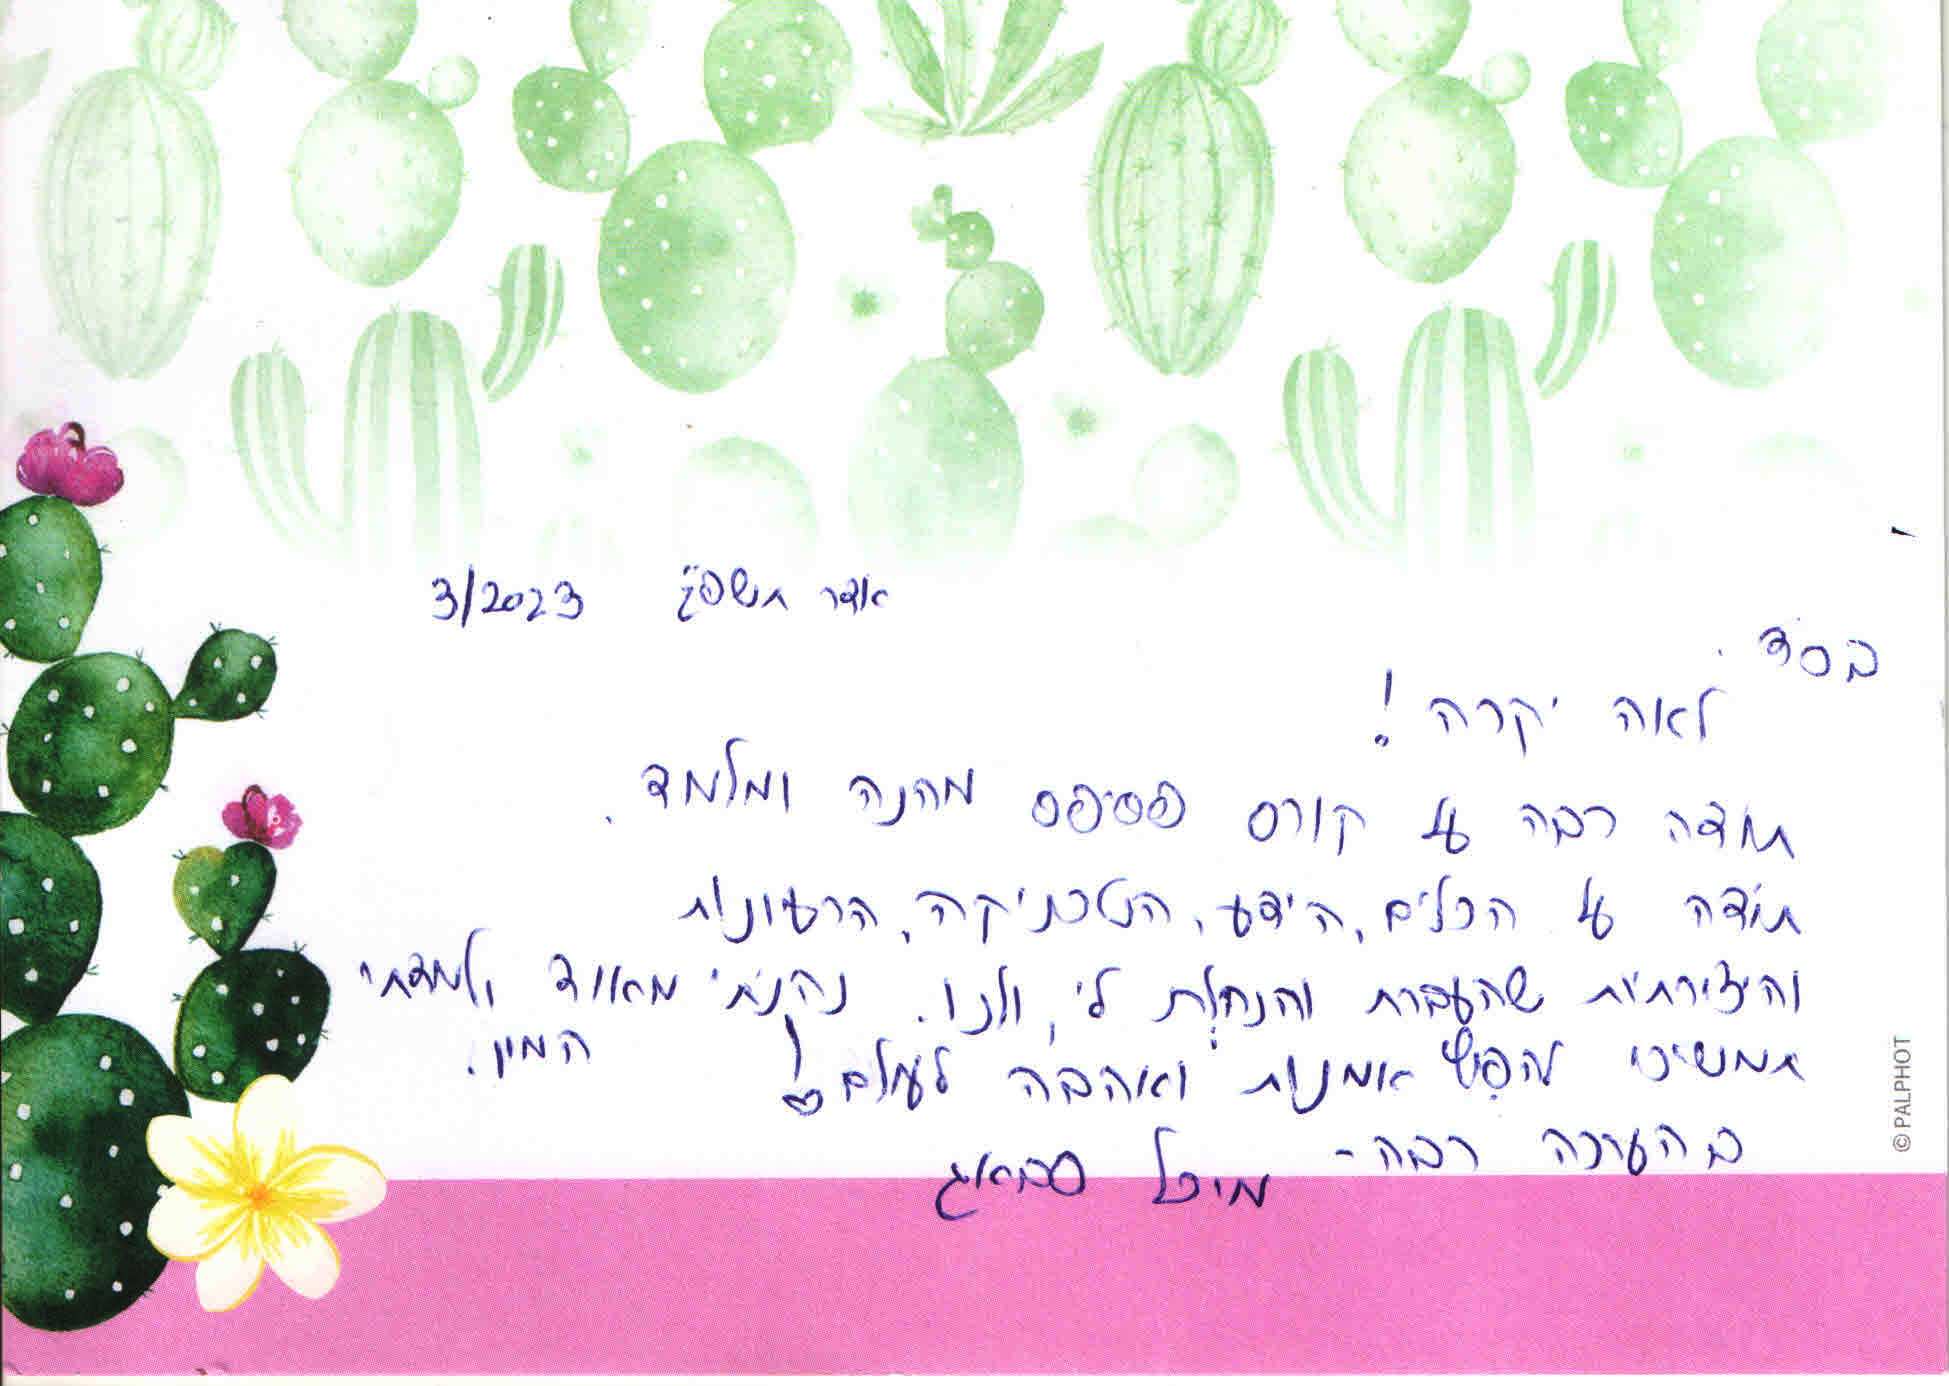 אדר תשפ"ג 3/2023
בס"ד
לאה יקרה!
תודה רבה על קורס פסיפס מהנה ומלמד.
תודה על הכלים, הידע, הטכניקה, הרעיונות
והיצירתיות שהעברת והנחלת לי, ולנו. נהנתי מאוד ולמדתי
המון.
תמשיכי להפיש אומנות ואהבה לעולם!
בהערכה רבה-
מיכל סבאג
© PALPHOT